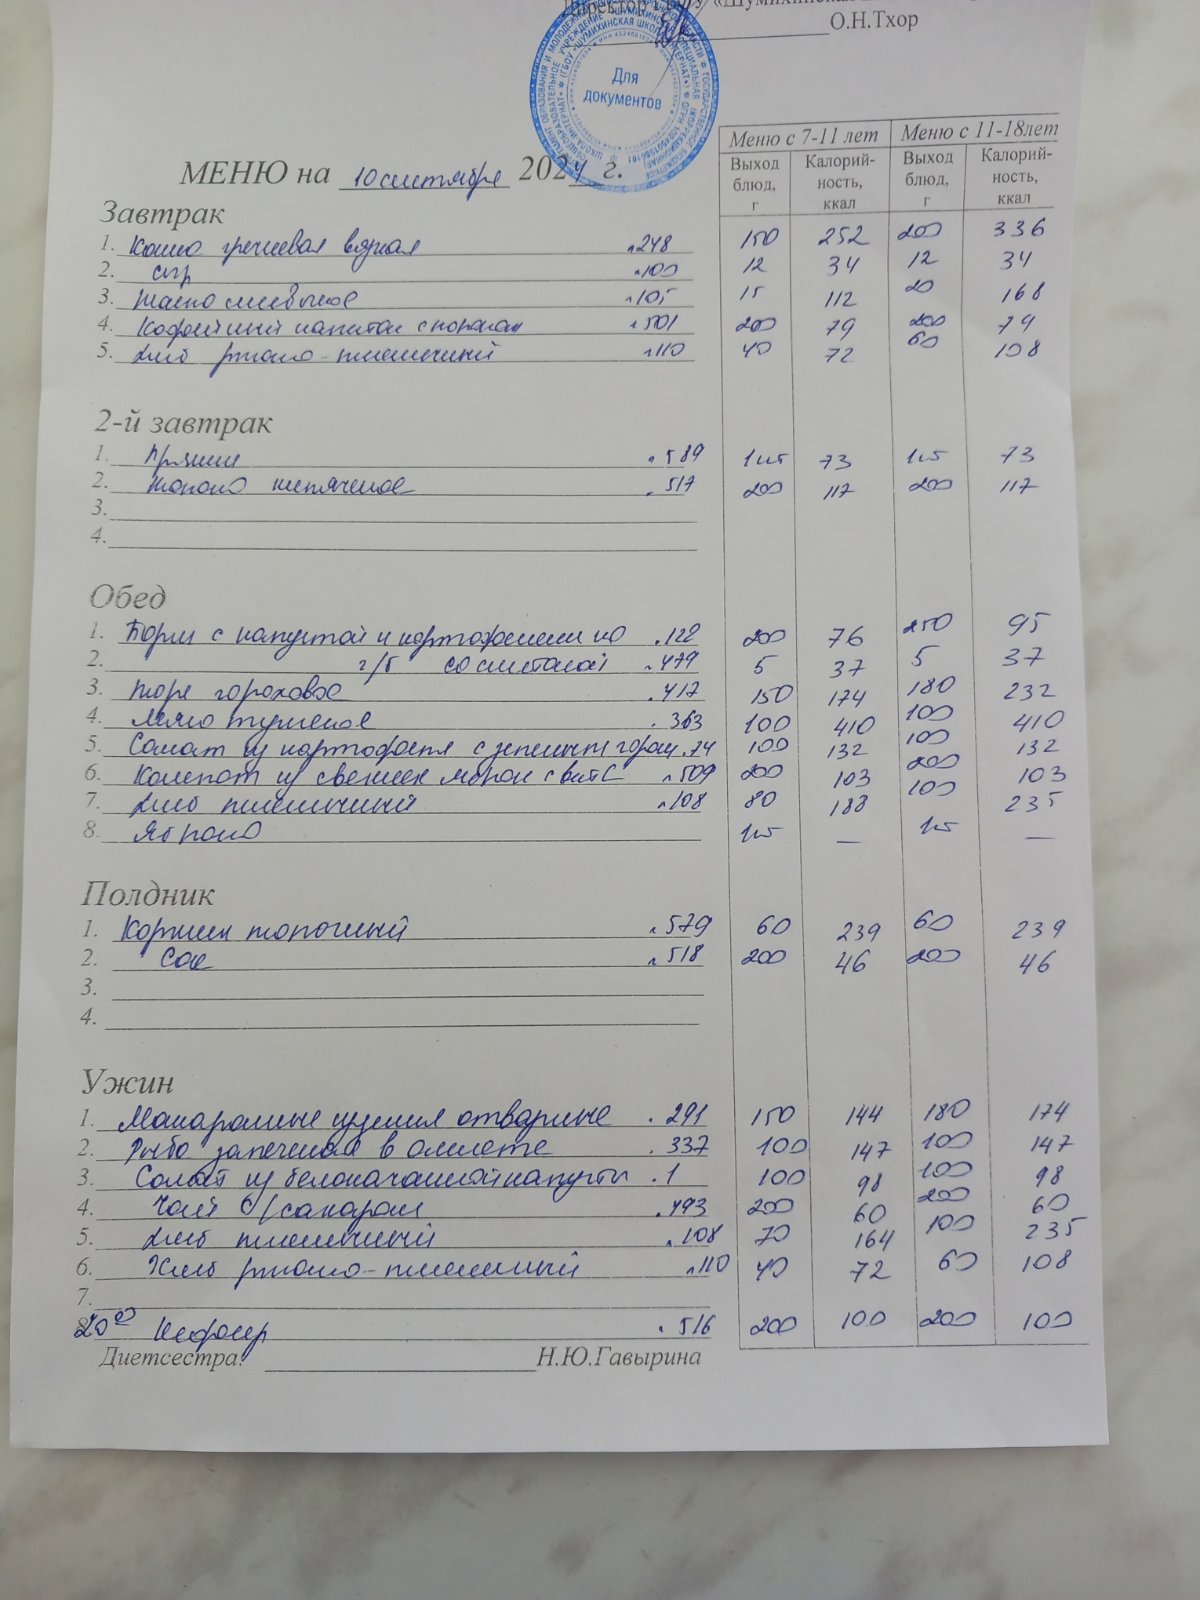 Директор ГБОУ «Шумихинская
О.Н.Тхор
Для
документов
МЕНЮ на 10 сентября 2024 г.
Меню с 7-11 лет Меню с 11-18лет
Выход блюд, г Калорий-ность, ккал Выход блюд, г Калорий-ность, ккал
Завтрак
1. Каша гречневая вязкая 248 150 252 200 336
2. сыр 100 12 34 12 34
3. Масло сливочное 105 15 112 20 168
4. Кофейный напиток с молоком 501 200 79 200 79
5. Хлеб ржано-пшеничный 110 40 72 60 108
2-й завтрак
1. Пряник 589 1шт 73 1шт 73
2. Молоко кипяченое 517 200 117 200 117
3.
4.
Обед
1. Борщ с капустой и картофелем на 122 200 76 250 95
2. г/б со сметаной 479 5 37 5 37
3. Пюре гороховое 417 150 174 180 232
4. Мясо тушеное 363 100 410 100 410
5. Салат из картофеля с зеленым горош. 74 100 132 100 132
6. Компот из свежих яблок с вит С 509 200 103 200 103
7. Хлеб пшеничный 108 80 188 100 235
8. Яблоко 1шт — 1шт —
Полдник
1. Коржик молочный 579 60 239 60 239
2. Сок 518 200 46 200 46
3.
4.
Ужин
1. Макаронные изделия отварные 291 150 144 180 174
2. Рыба запеченая в омлете 337 100 147 100 147
3. Салат из белокачанной капусты 1 100 98 100 98
4. Чай с/сахаром 493 200 60 200 60
5. Хлеб пшеничный 108 70 164 100 235
6. Хлеб ржано-пшеничный 110 40 72 60 108
7.
20⁰⁰ Кефир 516 200 100 200 100
Диетсестра: Н.Ю.Гавырина